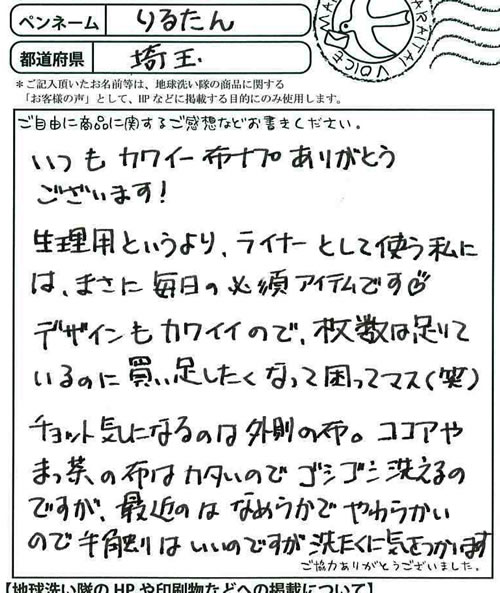 ペンネーム りるたん
都道府県 埼玉
*ご記入頂いたお名前等は、地球洗い隊の商品に関する
「お客様の声」として、HPなどに掲載する目的にのみ使用します。
ARAITAI VOICE
ご自由に商品に関するご感想などお書きください。
いつも カワイー 布ナプ ありがとう
ございます!
生理用というより、ライナー として使う私に
は、まさに 毎日の必須アイテムです
デザインも カワイイ ので、枚数は足りて
いるのに 買い足したく なって困ってマス(笑)
チョット気になるのは 外側の布。ココアや
まっ茶の布は カタいので ゴシゴシ洗えるの
ですが、最近のは なめらかで やわらかい
ので 手触りは いいのですが 洗たくに気をつかいます
ご協力ありがとうございました。
【地球洗い隊のHPや印刷物などへの掲載について】